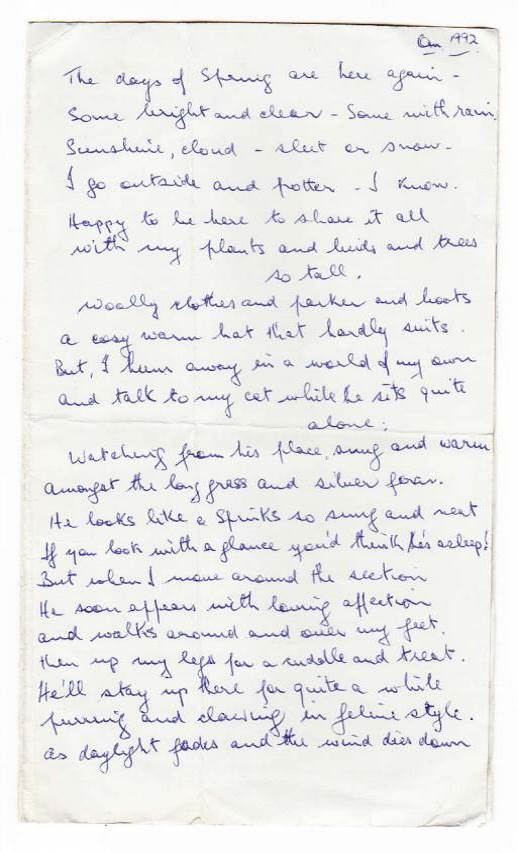 1992
The days of Spring are here again -
Some bright and clear - Some with rain.
Sunshine, cloud - sleet or snow -
I go outside and potter - I know.
Happy to be here to share it all
with my plants and birds and trees
so tall.
Woolly clothes and parker and boots
a cosy warm hat that hardly suits.
But, I hum away in a world of my own
and talk to my cat while he sits quite
alone:
Watching from his place, snug and warm
amongst the long grass and silver
He looks like a Sphinks so snug and neat
If you look with a glance you'd think he's asleep!
But when I move around the section
He soon appears with loving affection
and walks around and over my feet.
then up my legs for a cuddle and treat.
He'll stay up there for quite a while
purring and clawing in feline style.
as daylight fades and the wind dies down